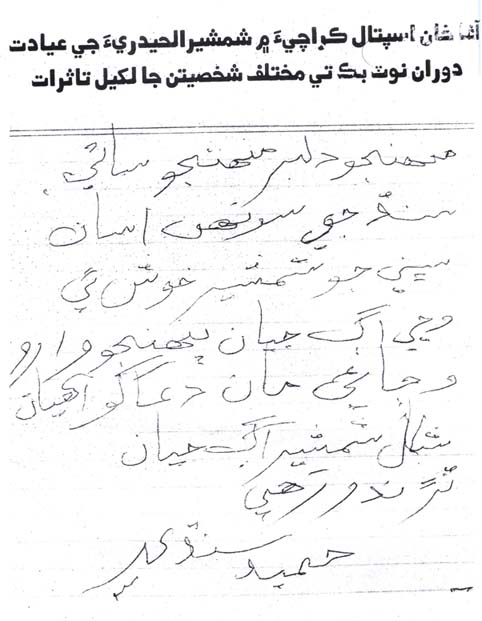 آغا خان اسپتال ڪراچيءَ ۾ شمشيرالحيدريءَ جي عيادت
دوران نوٽ بڪ تي مختلف شخصيتن جا لکيل تاثرات
منهنجو دلبر منهنجو ساٿي
سنڌ جي سونهن اسان
سڀني جو شمشير خوش ٿي
وڃي اڳ جيان پنهنجو وارو
وڄائي مان دعا گو آهيان
شال شمشير اڳ جيان
ٽڙندو رهي
حميد سنڌي